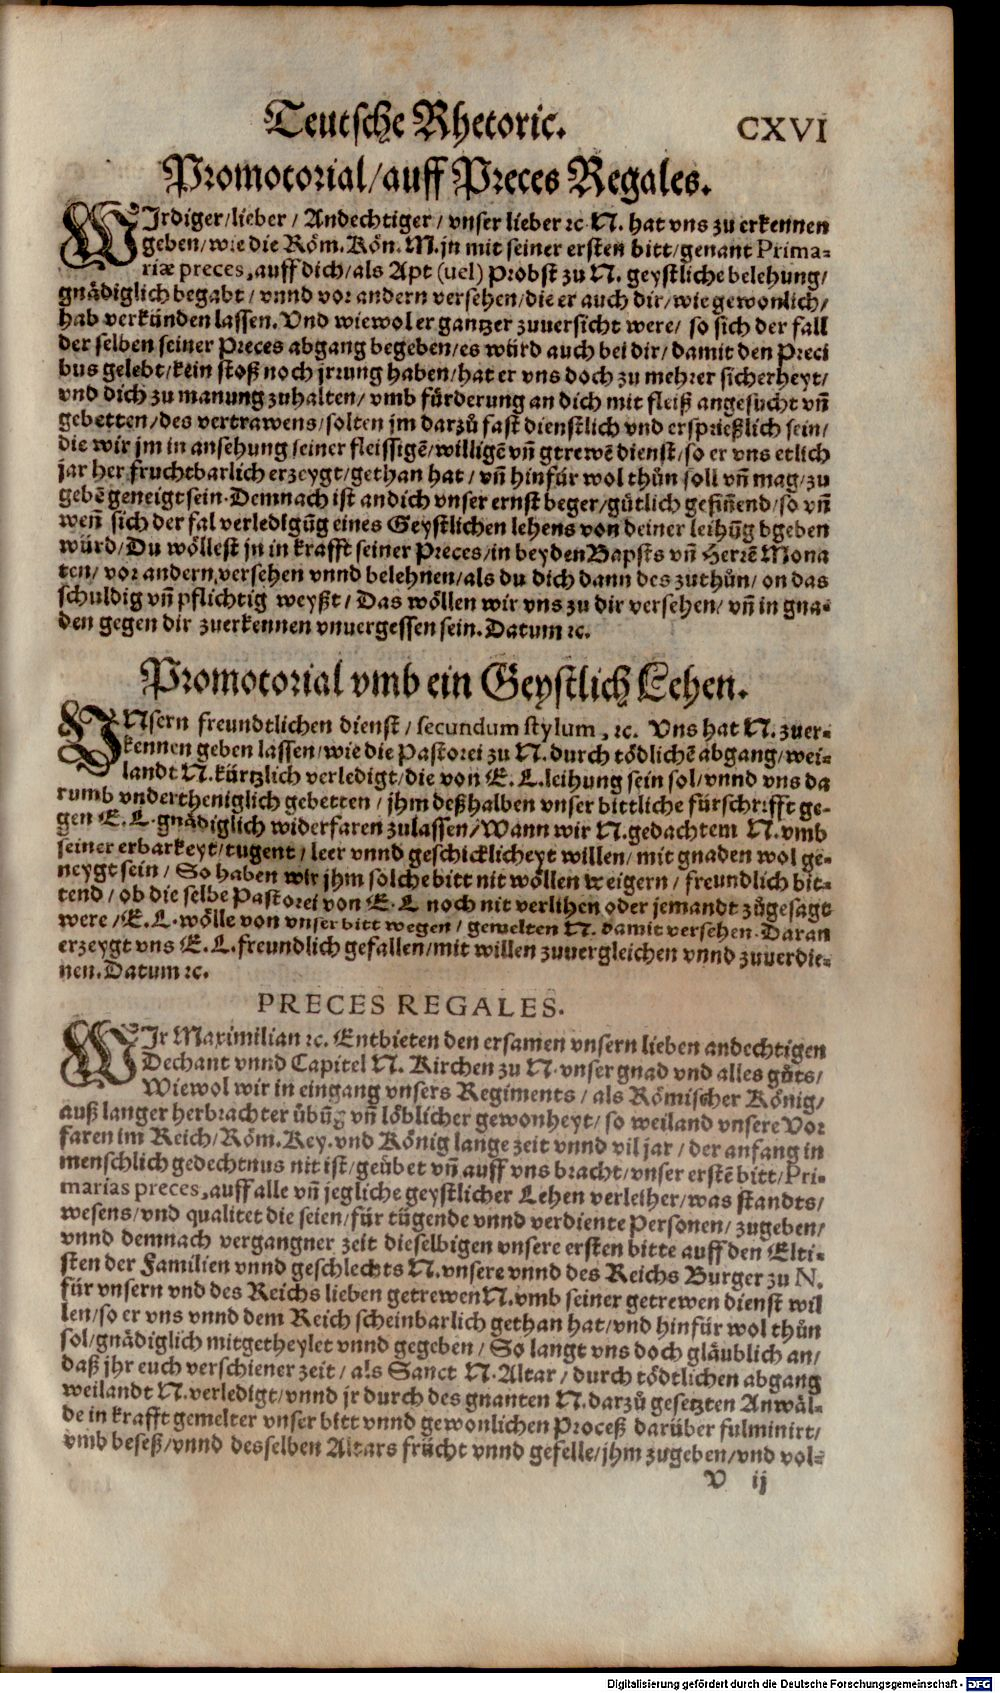 Teutsche Rhetoric. CXVI
Promotorial/auff Preces Regales.
WIrdiger/lieber/ Andechtiger/ vnser lieber ꝛc. N. hat vns zu erkennen
geben/wie die Röm. Kön. M. jn mit seiner ersten bitt/genant Prima-
riæ preces, auff dich/als Apt (uel) Probst zu N. geystliche belehung/
gnädiglich begabt/ vnnd vor andern versehen/die er auch dir/wie gewonlich/
hab verkünden lassen. Vnd wiewol er gantzer zuuersicht were/ so sich der fall
der selben seiner Preces abgang begeben/es würd auch bei dir/damit den Preci
bus gelebt/kein stoß noch jrrung haben/hat er vns doch zu mehrer sicherheyt/
vnd dich zu manung zuhalten/ vmb fürderung an dich mit fleiß angesucht vñ
gebetten/des vertrawens/solten jm darzů fast dienstlich vnd ersprießlich sein/
die wir jm in ansehung seiner fleissigẽ/willigẽ vñ gtrewẽ dienst/so er vns etlich
jar her fruchtbarlich erzeygt/gethan hat/ vñ hinfür wol thůn soll vñ mag/zu
gebẽ geneigt sein. Demnach ist an dich vnser ernst beger/gütlich gesiñend/so vñ
weñ sich der fal verledigũg eines Geystlichen lehens von deiner leihũg bgeben
würd/Du wöllest jn in krafft seiner Preces/in beyden Bapsts vñ Herrẽ Mona
ten/ vor andern versehen vnnd belehnen/als du dich dann des zuthůn/on das
schuldig vñ pflichtig weyßt/ Das wöllen wir vns zu dir versehen/ vñ in gna-
den gegen dir zuerkennen vnuergessen sein. Datum ꝛc.
Promotorial vmb ein Geystlich Lehen.
VNsern freundtlichen dienst/ secundum stylum, ꝛc. Vns hat N. zuer-
kennen geben lassen/wie die Pastorei zu N. durch tödlichẽ abgang/wei-
landt N. kürtzlich verledigt/die von E. L. leihung sein sol/vnnd vns da
rumb vndertheniglich gebetten/ jhm deßhalben vnser bittliche fürschrifft ge-
gen E. L. gnädiglich widerfaren zulassen/Wann wir N. gedachtem N. vmb
seiner erbarkeyt/tugent/ leer vnnd geschicklicheyt willen/mit gnaden wol ge-
neygt sein/ So haben wir jhm solche bitt nit wöllen weigern/ freundlich bit-
tend/ ob die selbe Pastorei von E. L. noch nit verlihen oder jemandt zůgesagt
were/E. L. wölle von vnser bitt wegen/ gemelten N. damit versehen. Daran
erzeygt vns E. L. freundlich gefallen/mit willen zuuergleichen vnnd zuuerdie-
nen. Datum ꝛc.
PRECES REGALES.
WIr Maximilian ꝛc. Entbieten den ersamen vnsern lieben andechtigen
Dechant vnnd Capitel N. Kirchen zu N. vnser gnad vnd alles gůts/
Wiewol wir in eingang vnsers Regiments/ als Römischer König/
auß langer herbrachter übũg vñ löblicher gewonheyt/ so weiland vnsere Vor
faren im Reich/Röm. Key. vnd König lange zeit vnnd vil jar/ der anfang in
menschlich gedechtnus nit ist/geübet vñ auff vns bracht/vnser erstẽ bitt/Pri-
marias preces, auff alle vñ jegliche geystlicher Lehen verleiher/was standts/
wesens/vnd qualitet die seien/für tügende vnnd verdiente Personen/ zugeben/
vnnd demnach vergangner zeit dieselbigen vnsere ersten bitte auff den Elti-
sten der Familien vnnd geschlechts N. vnsere vnnd des Reichs Burger zu N.
für vnsern vnd des Reichs lieben getrewen N. vmb seiner getrewen dienst wil
len/so er vns vnnd dem Reich scheinbarlich gethan hat/vnd hinfür wol thůn
sol/gnädiglich mitgetheylet vnnd gegeben/ So langt vns doch gläublich an/
daß jhr euch verschiener zeit/ als Sanct N. Altar/ durch tödtlichen abgang
weilandt N. verledigt/vnnd jr durch des gnanten N. darzů gesetzten Anwäl-
de in krafft gemelter vnser bitt vnnd gewonlichen Proceß darüber fulminirt/
vmb beseß/vnnd desselben Altars frücht vnnd gefelle/jhm zugeben/vnd vol-
V ij
Digitalisierung gefördert durch die Deutsche Forschungsgemeinschaft - DFG